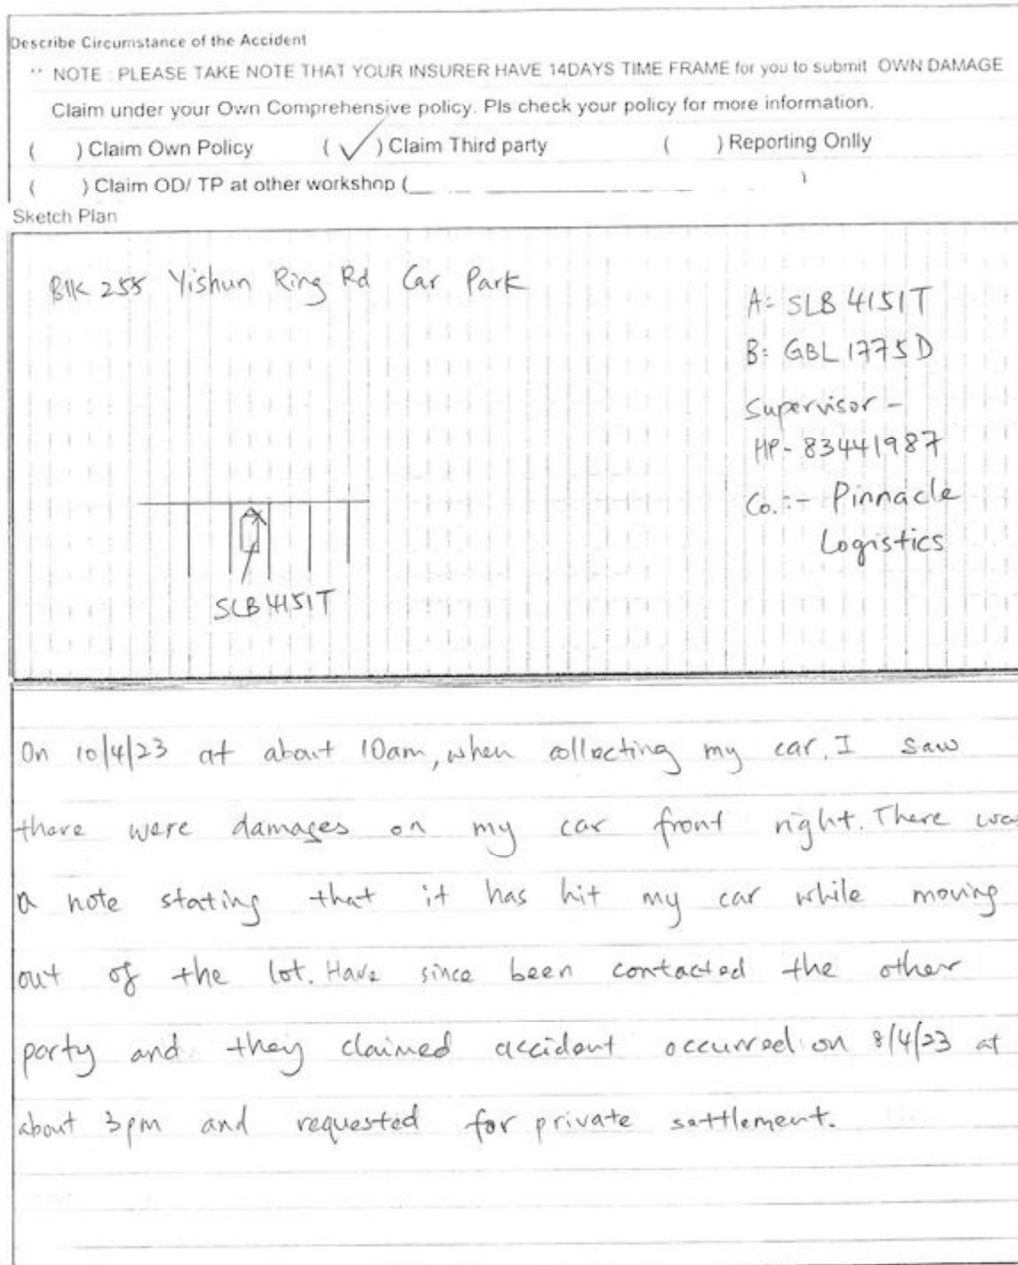 Describe Circumstance of the Accident
** NOTE : PLEASE TAKE NOTE THAT YOUR INSURER HAVE 14DAYS TIME FRAME for you to submit OWN DAMAGE
Claim under your Own Comprehensive policy. Pls check your policy for more information.
( ) Claim Own Policy ( ✓ ) Claim Third party ( ) Reporting Onlly
( ) Claim OD/ TP at other workshop ( )
Sketch Plan
Blk 255 Yishun Ring Rd Car Park
A: SLB 4151T
B: GBL 1775D
Supervisor -
HP- 83441987
Co. :- Pinnacle
Logistics
SLB 4151T
On 10/4/23 at about 10am, when collecting my car, I saw
there were damages on my car front right. There was
a note stating that it has hit my car while moving
out of the lot. Have since been contacted the other
party and they claimed accident occurred on 8/4/23 at
about 3pm and requested for private settlement.